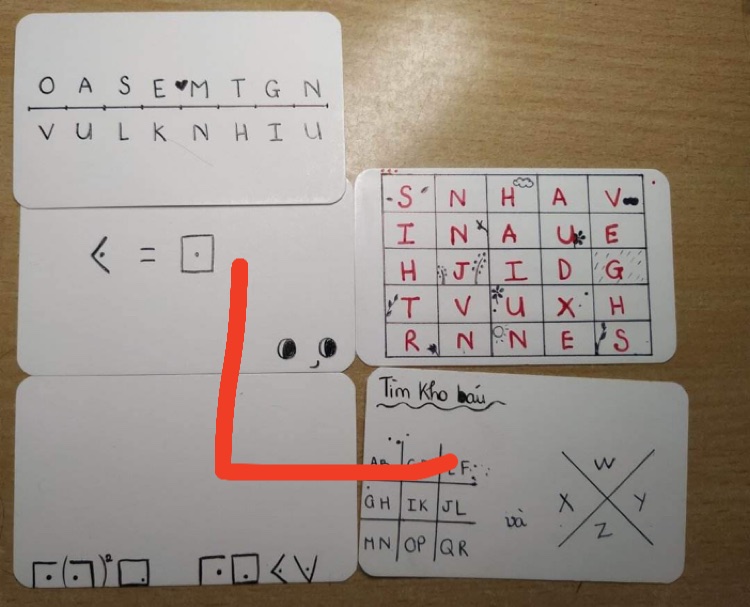 O A S E ♥ M T G N
V U L K N H I U
=
S N H A V
I N A U E
H J I D G
T V U X H
R N N E S
Tìm Kho báu
AB F
GH IK JL
MN OP QR
và
W
X Y
Z